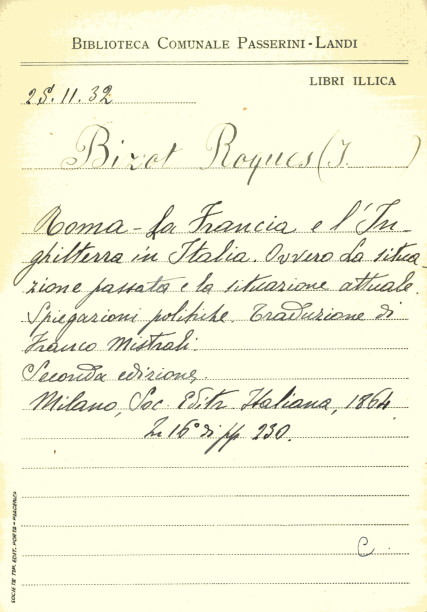 BIBLIOTECA COMUNALE PASSERINI-LANDI
LIBRI ILLICA
25.11.32
Bizot Roques (J. )
Roma - La Francia e l'In-
ghilterra in Italia. Ovvero La situa-
zione passata e la situazione attuale.
Spiegazioni politiche. Traduzione di
Franco Mistrali.
Seconda edizione,
Milano, Soc. Editr. Italiana, 1864
In 16° di pp 230.
C.
SOCIETÀ TIP. EDIT. PORTA - PIACENZA